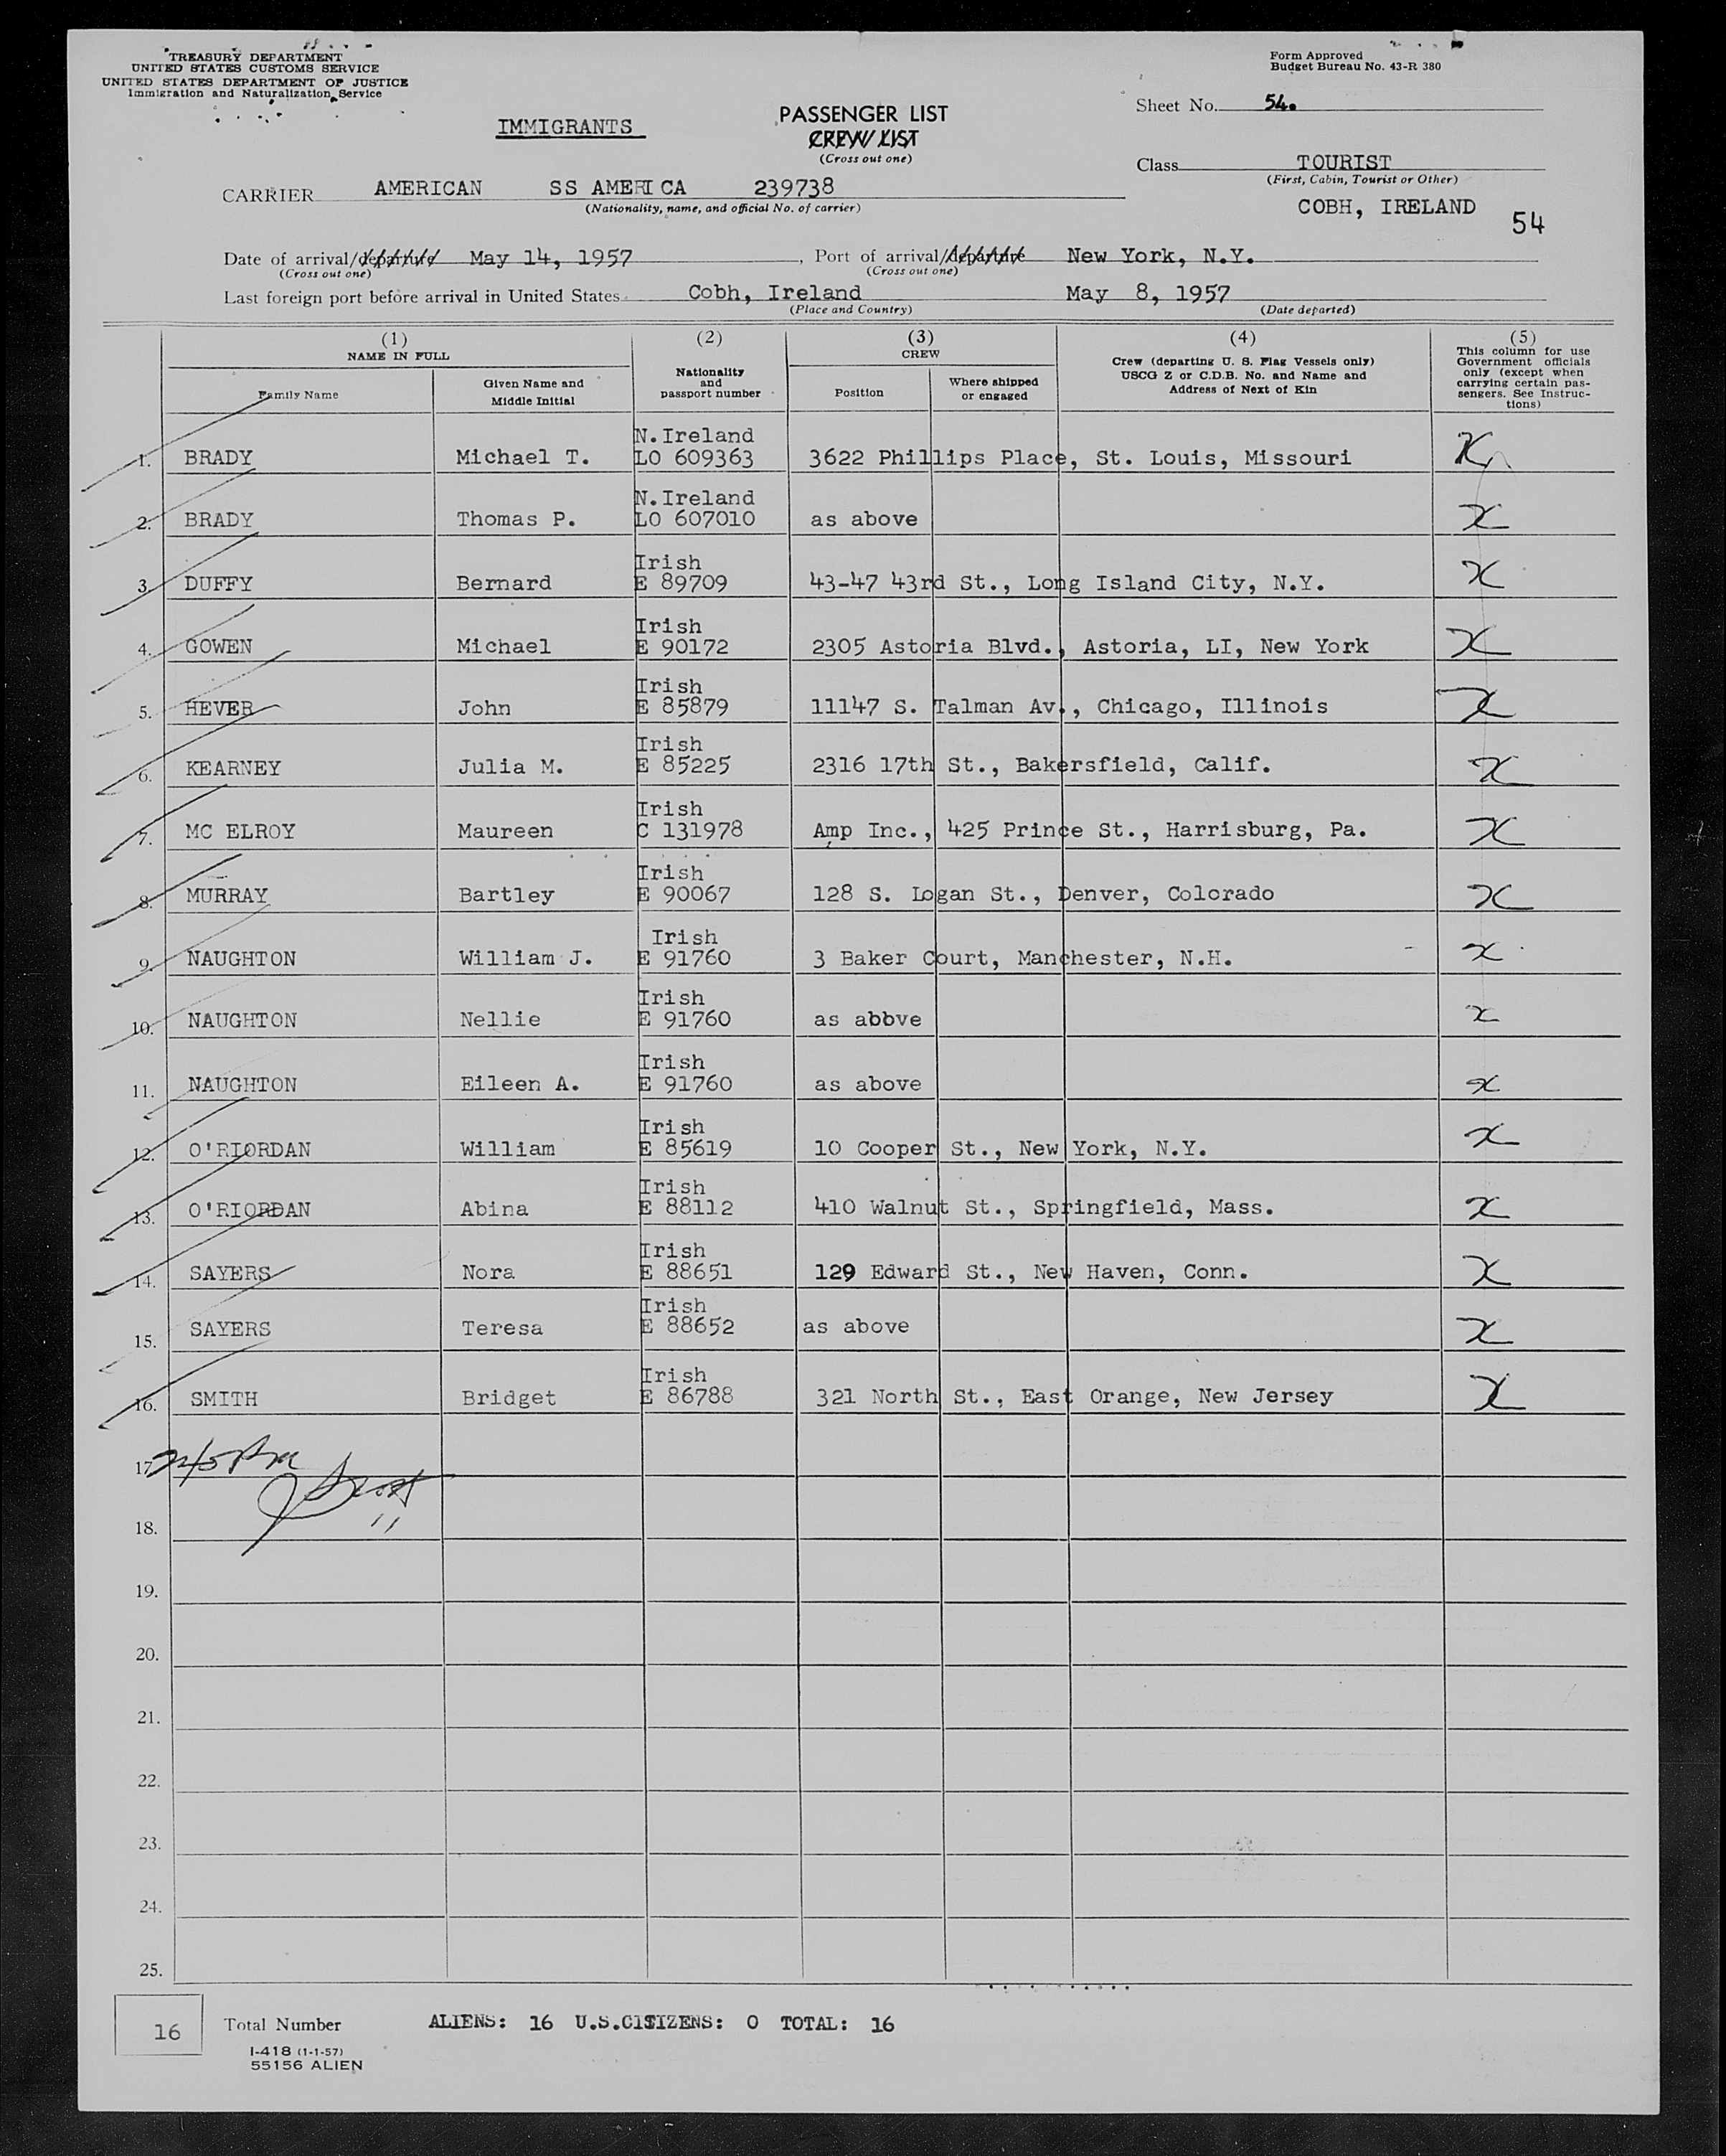 TREASURY DEPARTMENT
UNITED STATES CUSTOMS SERVICE
UNITED STATES DEPARTMENT OF JUSTICE
Immigration and Naturalization Service
Form Approved
Budget Bureau No. 43-R 380
IMMIGRANTS
PASSENGER LIST
CREW LIST
(Cross out one)
Sheet No. 54.
Class TOURIST
(First, Cabin, Tourist or Other)
CARRIER AMERICAN SS AMERICA 239738
(Nationality, name, and official No. of carrier)
COBH, IRELAND
54
Date of arrival/departure May 14, 1957, Port of arrival/departure New York, N.Y.
(Cross out one) (Cross out one)
Last foreign port before arrival in United States Cobh, Ireland May 8, 1957
(Place and Country) (Date departed)
(1) (2) (3) (4) (5)
NAME IN FULL
Family Name
Given Name and
Middle Initial
Nationality
and
passport number
CREW
Position
Where shipped
or engaged
Crew (departing U. S. Flag Vessels only)
USCG Z or C.D.B. No. and Name and
Address of Next of Kin
This column for use
Government officials
only (except when
carrying certain pas-
sengers. See Instruc-
tions)
N.Ireland
1. BRADY Michael T. LO 609363 3622 Phillips Place, St. Louis, Missouri X
N.Ireland
2. BRADY Thomas P. LO 607010 as above X
Irish
3. DUFFY Bernard E 89709 43-47 43rd St., Long Island City, N.Y. X
Irish
4. GOWEN Michael E 90172 2305 Astoria Blvd., Astoria, LI, New York X
Irish
5. HEVER John E 85879 11147 S. Talman Av., Chicago, Illinois X
Irish
6. KEARNEY Julia M. E 85225 2316 17th St., Bakersfield, Calif. X
Irish
7. MC ELROY Maureen C 131978 Amp Inc., 425 Prince St., Harrisburg, Pa. X
Irish
8. MURRAY Bartley E 90067 128 S. Logan St., Denver, Colorado X
Irish
9. NAUGHTON William J. E 91760 3 Baker Court, Manchester, N.H. X
Irish
10. NAUGHTON Nellie E 91760 as abbve X
Irish
11. NAUGHTON Eileen A. E 91760 as above X
Irish
12. O'RIORDAN William E 85619 10 Cooper St., New York, N.Y. X
Irish
13. O'RIORDAN Abina E 88112 410 Walnut St., Springfield, Mass. X
Irish
14. SAYERS Nora E 88651 129 Edward St., New Haven, Conn. X
Irish
15. SAYERS Teresa E 88652 as above X
Irish
16. SMITH Bridget E 86788 321 North St., East Orange, New Jersey X
17.
18.
19.
20.
21.
22.
23.
24.
25.
16 Total Number ALIENS: 16 U.S.CISIZENS: 0 TOTAL: 16
I-418 (1-1-57)
55156 ALIEN